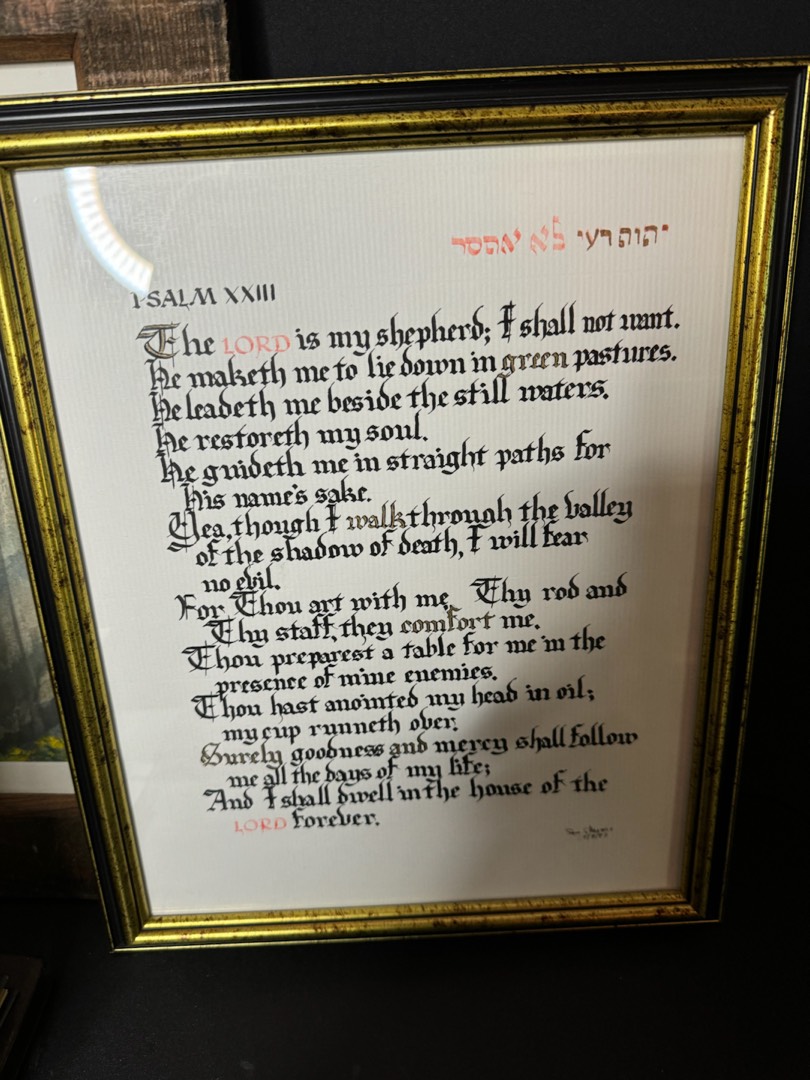 יהוה רעי לא אחסר
PSALM XXIII
The LORD is my shepherd; I shall not want.
He maketh me to lie down in green pastures.
He leadeth me beside the still waters.
He restoreth my soul.
He guideth me in straight paths for
His name's sake.
Yea, though I walk through the valley
of the shadow of death, I will fear
no evil.
For Thou art with me Thy rod and
Thy staff, they comfort me.
Thou preparest a table for me in the
presence of mine enemies.
Thou hast anointed my head in oil;
my cup runneth over.
Surely goodness and mercy shall follow
me all the days of my life;
And I shall dwell in the house of the
LORD forever.